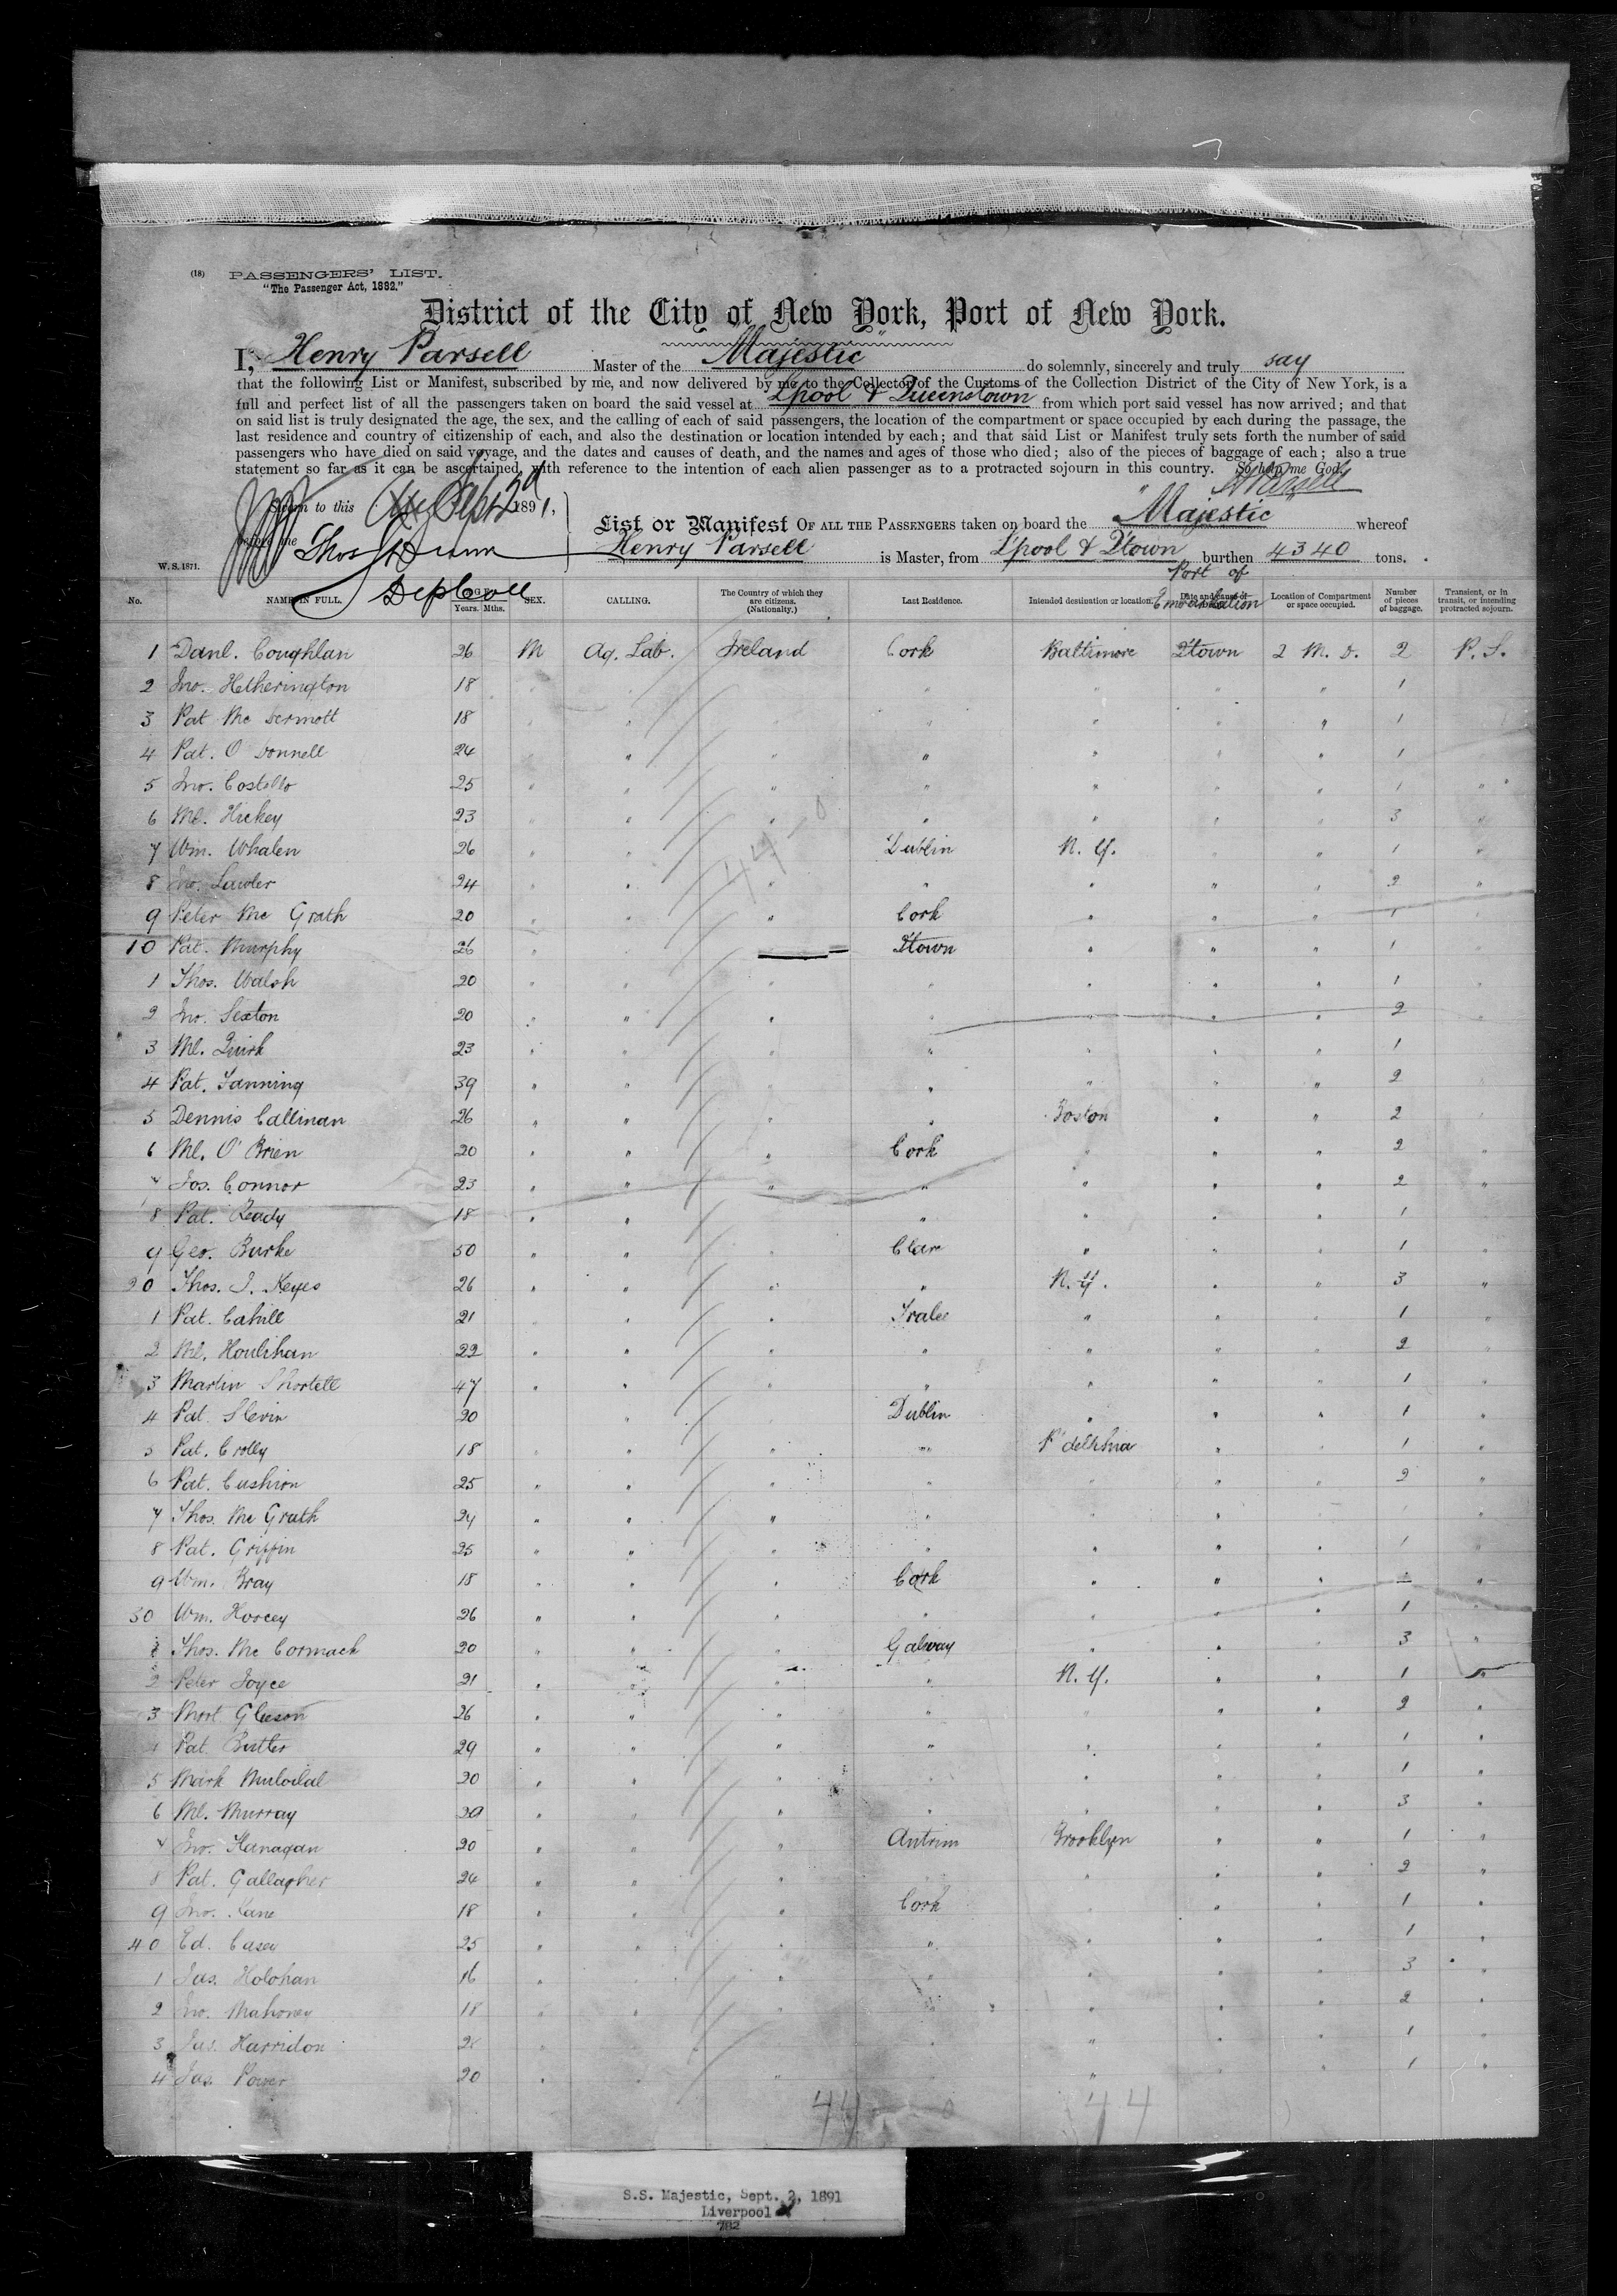 (18) PASSENGERS' LIST.
"The Passenger Act, 1882."
District of the City of New York, Port of New York.
I, Henry Parsell Master of the Majestic do solemnly, sincerely and truly say
that the following List or Manifest, subscribed by me, and now delivered by me to the Collector of the Customs of the Collection District of the City of New York, is a
full and perfect list of all the passengers taken on board the said vessel at L'pool & Queenstown from which port said vessel has now arrived; and that
on said list is truly designated the age, the sex, and the calling of each of said passengers, the location of the compartment or space occupied by each during the passage, the
last residence and country of citizenship of each, and also the destination or location intended by each; and that said List or Manifest truly sets forth the number of said
passengers who have died on said voyage, and the dates and causes of death, and the names and ages of those who died; also of the pieces of baggage of each; also a true
statement so far as it can be ascertained, with reference to the intention of each alien passenger as to a protracted sojourn in this country. So help me God.
H Parsell
Sworn to this Sept 2d 1891,
before me Thos
Dep Coll
List or Manifest OF ALL THE PASSENGERS taken on board the Majestic whereof
Henry Parsell is Master, from L'pool & Q'town burthen 4340 tons.
W. S. 1871.
Port of Embarkation
No. NAME IN FULL. AGE. Years. Mths. SEX. CALLING. The Country of which they are citizens. (Nationality.) Last Residence. Intended destination or location. Date and cause of Location of Compartment or space occupied. Number of pieces of baggage. Transient, or in transit, or intending protracted sojourn.
1 Danl. Coughlan 26 M Ag. Lab. Ireland Cork Baltimore Q'town 2 M. D. 2 P. S.
2 Jno. Hetherington 18 " " " " " " " 1
3 Pat Mc Dermott 18 " " " " " " " 1
4 Pat. O Donnell 24 " " " " " " " 1
5 Jno. Costello 25 " " " " " " " 1 "
6 Ml. Hickey 23 " " " " " " " 3 "
7 Wm. Whalen 26 " " " Dublin N. Y. " " 1 "
8 Jno. Lawler 24 " " " " " " " 2 "
9 Peter Mc Grath 20 " " " Cork " " " 1 "
10 Pat. Murphy 26 " " Q'town " " " 1
1 Thos. Walsh 20 " " " " " " " 1
2 Jno. Sexton 20 " " " " " " " 2 "
3 Ml. Quirk 23 " " " " " " " 1
4 Pat. Fanning 39 " " " " " " " 2
5 Dennis Callinan 26 " " " " Boston " " 2
6 Ml. O'Brien 20 " " " Cork " " " 2 "
7 Jos. Connor 23 " " " " " " " 2 "
8 Pat. Ready 18 " " " " " " " 1
9 Geo. Burke 50 " " " Clare " " " 1 "
20 Thos. J. Keyes 26 " " " " N. Y. " " 3 "
1 Pat. Cahill 21 " " " Tralee " " " 1 "
2 Ml. Houlihan 22 " " " " " " " 2 "
3 Martin Shortell 47 " " " " " " " 1 "
4 Pat. Slevin 20 " " Dublin " " " 1 "
5 Pat. Crolly 18 " " " " P'delphia " " 1 "
6 Pat. Cushion 25 " " " " " " " 2 "
7 Thos. Mc Grath 24 " " " " " " "
8 Pat. Griffin 25 " " " " " " " 1 "
9 Wm. Bray 18 " " " Cork " " " 1 "
30 Wm. 26 " " " " " " " 1 "
1 Thos. Mc Cormack 20 " " " Galway " " " 3 "
2 Peter Joyce 21 " " " " N. Y. " " 1 "
3 Mort Gleeson 26 " " " " " " " 2 "
4 Pat. Butler 29 " " " " " " " 1 "
5 Mark 20 " " " " " " " 1 "
6 Ml. Murray 20 " " " " " " " 3 "
7 Jno. Flanagan 20 " " " Antrim Brooklyn " " 1 "
8 Pat. Gallagher 24 " " " " " " " 2 "
9 Jno. Kane 18 " " " Cork " " " 1 "
40 Ed. Casey 25 " " " " " " " 1 "
1 Jas. Holohan 16 " " " " " " " 3 "
2 Jno. Mahoney 18 " " " " " " " 2 "
3 Jas. Harridon " " " " " 1 "
4 Jas. Power 20 " " " " " " 1 "
44 44
S.S. Majestic, Sept. 2, 1891
Liverpool
782